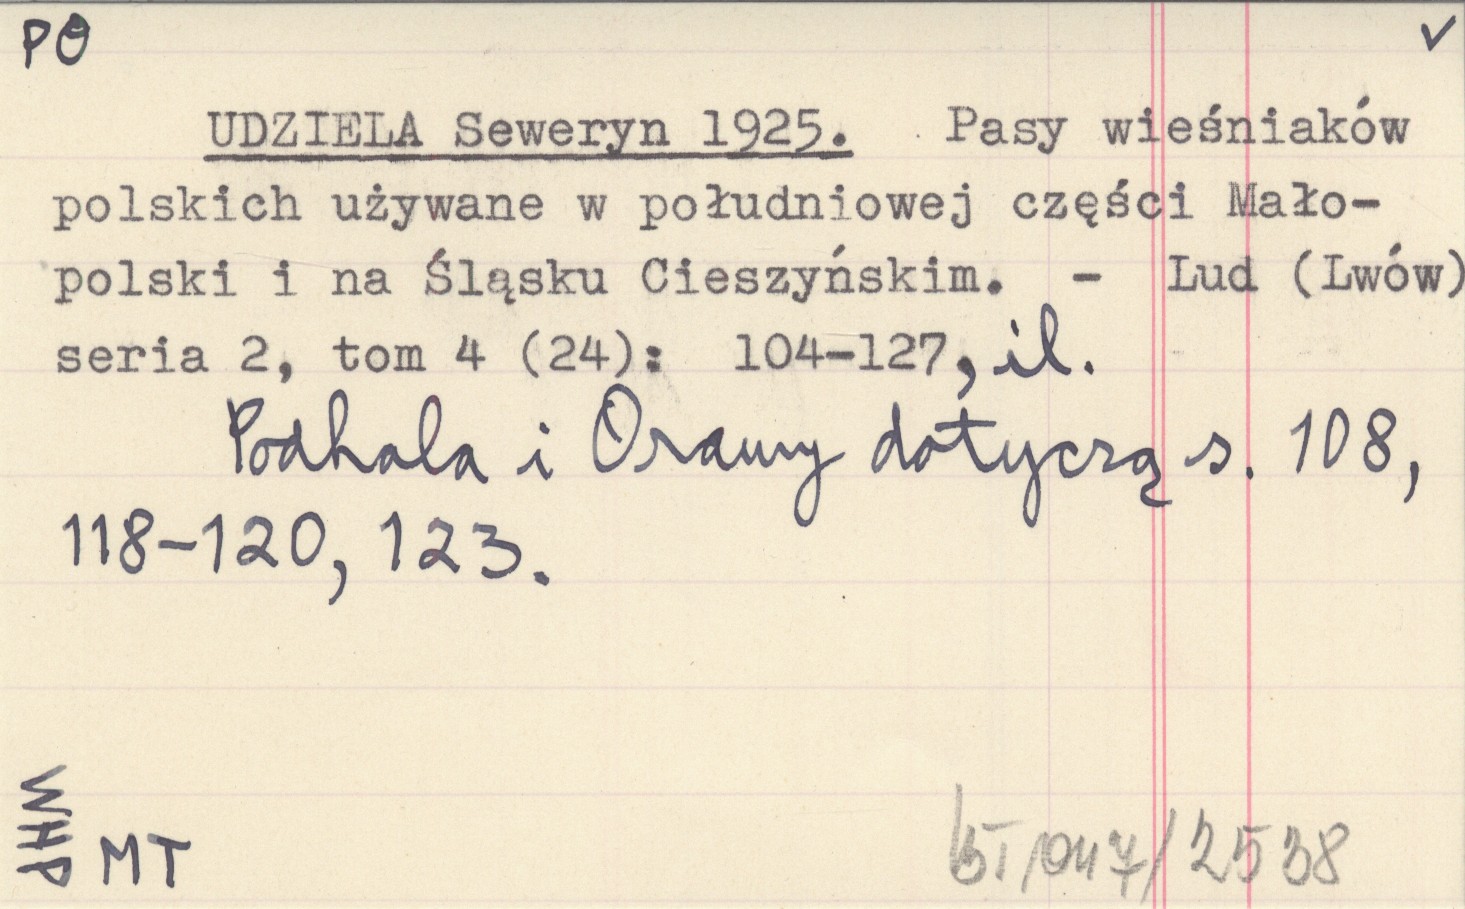 PO ✓
UDZIELA Seweryn 1925. Pasy wieśniaków
polskich używane w południowej części Mało-
polski i na Śląsku Cieszyńskim. - Lud (Lwów)
seria 2, tom 4 (24): 104-127, il.
Podhala i Orawy dotyczą s. 108,
118-120, 123.
WHP
MT
/047/2538